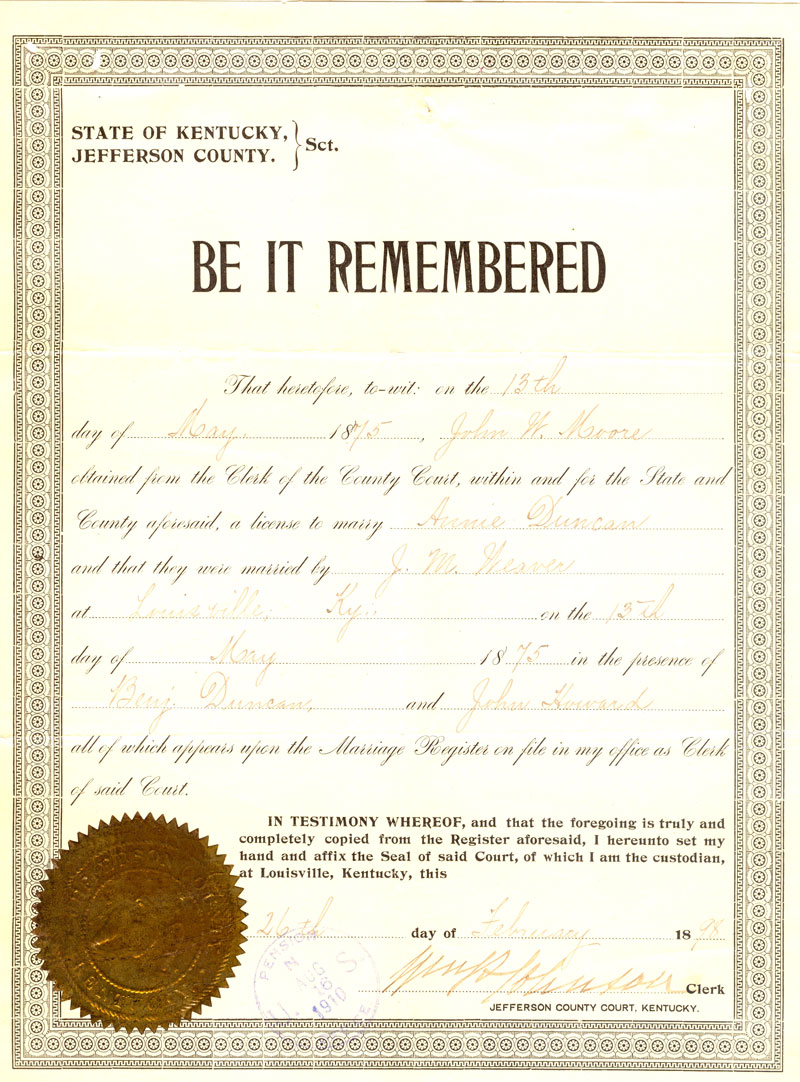 STATE OF KENTUCKY,
JEFFERSON COUNTY. } Sct.
BE IT REMEMBERED
That heretofore, to-wit: on the 13th
day of May 1875, John W. Moore
obtained from the Clerk of the County Court, within and for the State and
County aforesaid, a license to marry Annie Duncan
and that they were married by J. M. Weaver
at Louisville, Ky. on the 13th
day of May 1875 in the presence of
Benj Duncan, and John Howard
all of which appears upon the Marriage Register on file in my office as Clerk
of said Court.
IN TESTIMONY WHEREOF, and that the foregoing is truly and
completely copied from the Register aforesaid, I hereunto set my
hand and affix the Seal of said Court, of which I am the custodian,
at Louisville, Kentucky, this
26th day of February 1898
Johnson Clerk
JEFFERSON COUNTY COURT, KENTUCKY.
PENSION
U. S.
1910